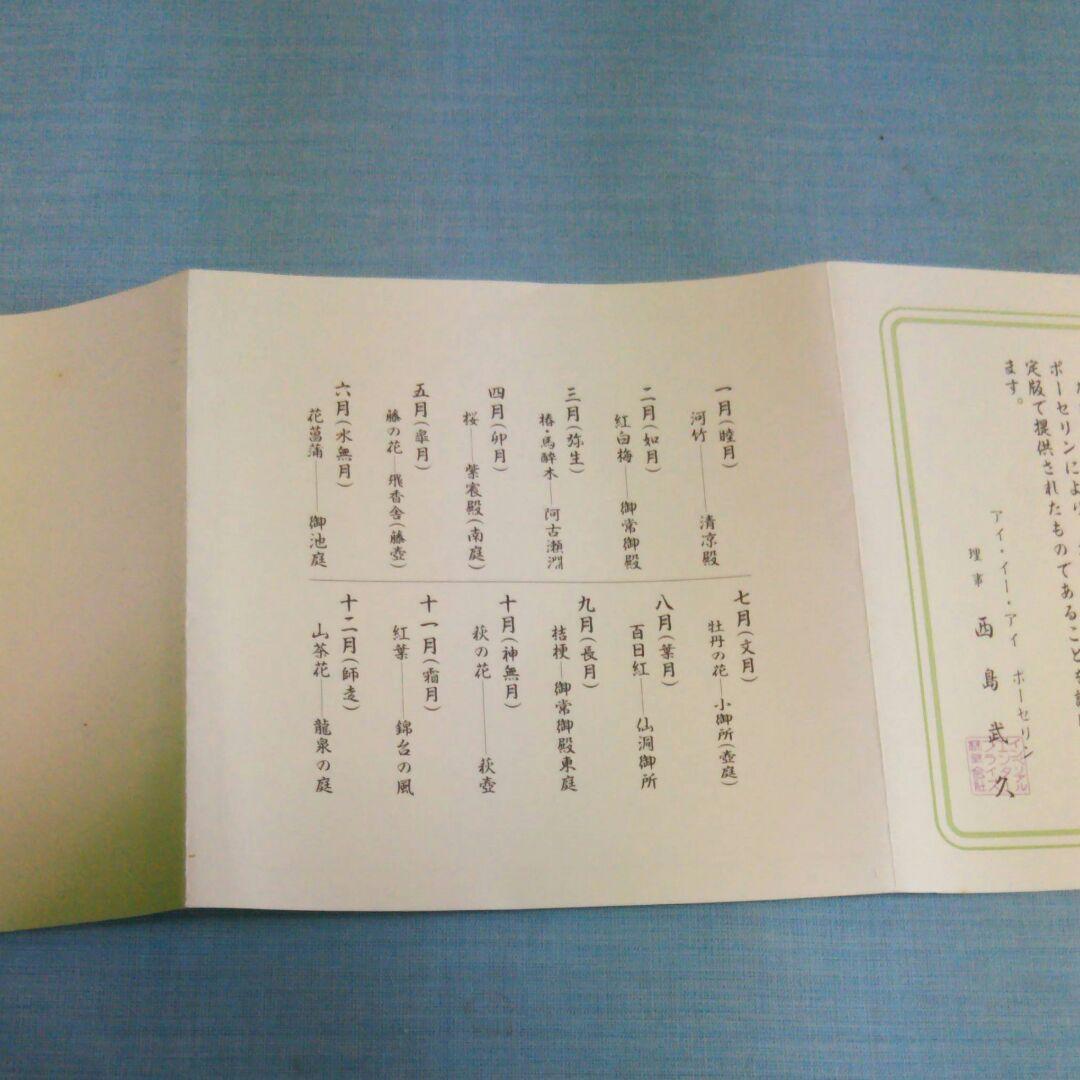 ポーセリンにより
定版で提供されたものであることを
ます。
アイ・イー・アイ ポーセリン
理事 西島武久
一月(睦月)
河竹――清凉殿
二月(如月)
紅白梅――御常御殿
三月(弥生)
椿・馬酔木――阿古瀬淵
四月(卯月)
桜――紫宸殿(南庭)
五月(皐月)
藤の花――飛香舎(藤壺)
六月(水無月)
花菖蒲――御池庭
七月(文月)
牡丹の花――小御所(壺庭)
八月(葉月)
百日紅――仙洞御所
九月(長月)
桔梗――御常御殿東庭
十月(神無月)
萩の花――萩壺
十一月(霜月)
紅葉――錦台の風
十二月(師走)
山茶花――龍泉の庭